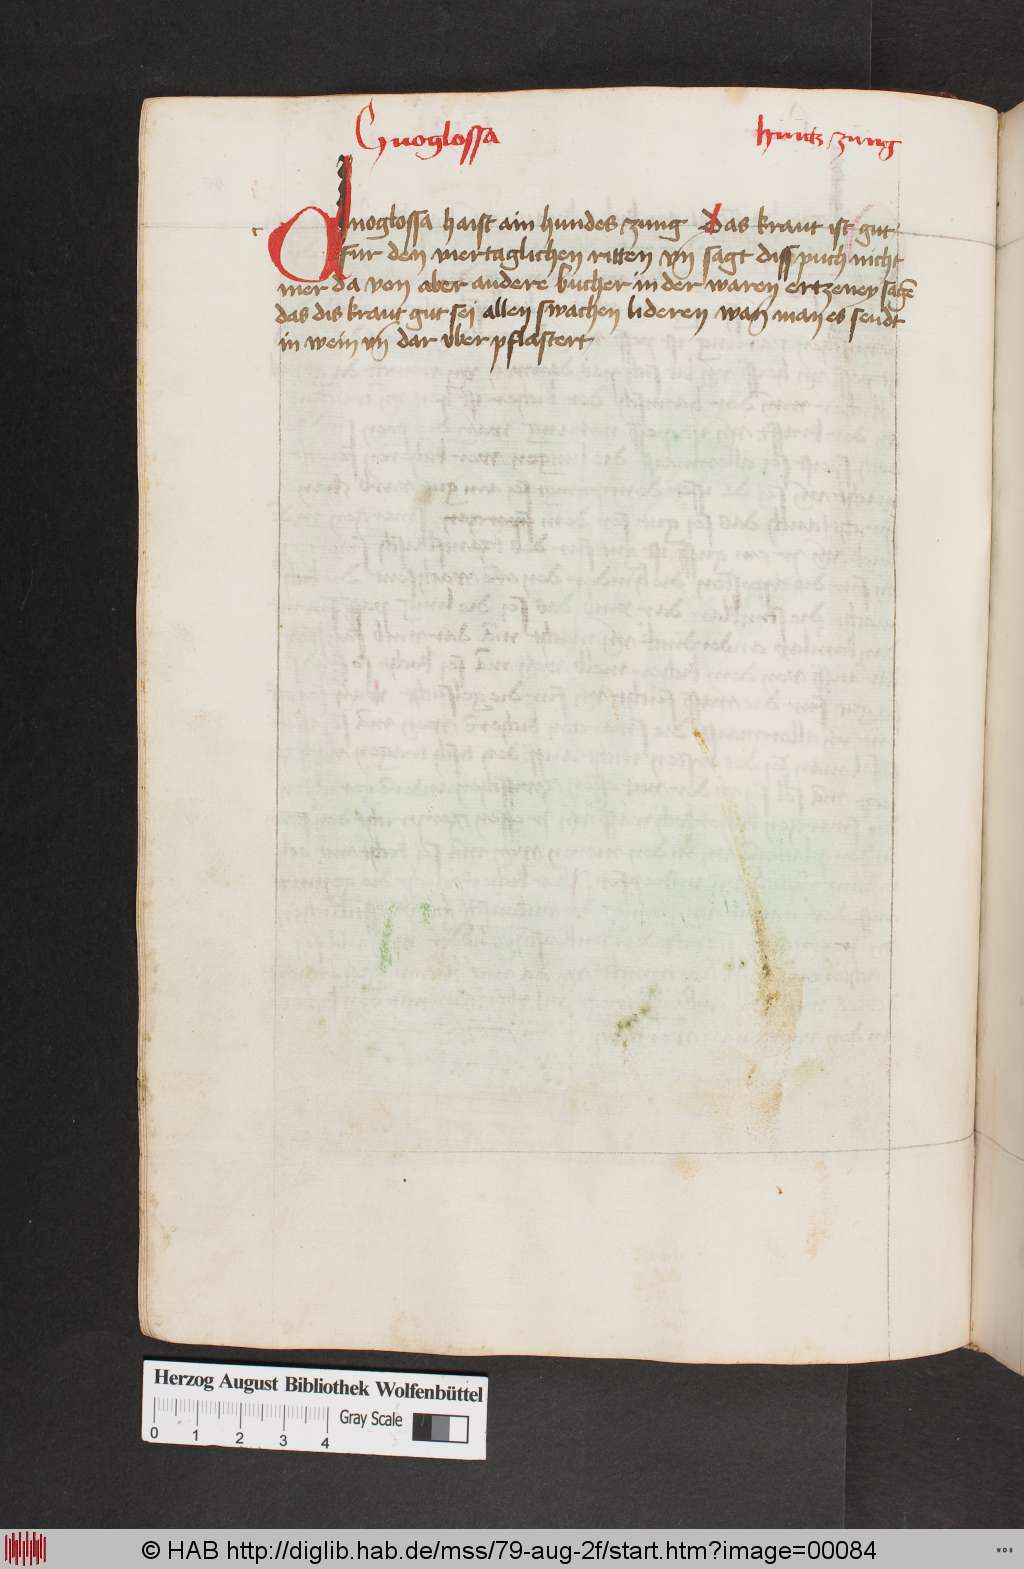 Cinoglossa huntz zung
Cinoglossa haist ain hundes zung das kraut ist gut
fur den viertaglichen ritten vn̄ sagt diss puch nicht
mer da von aber andere bucher in der waren ertzeney sagē
das dis kraut gut sei allen swachen lideren wan man es seudt
in wein vn̄ dar vber pflastert
Herzog August Bibliothek Wolfenbüttel
Gray Scale
0 1 2 3 4
© HAB http://diglib.hab.de/mss/79-aug-2f/start.htm?image=00084